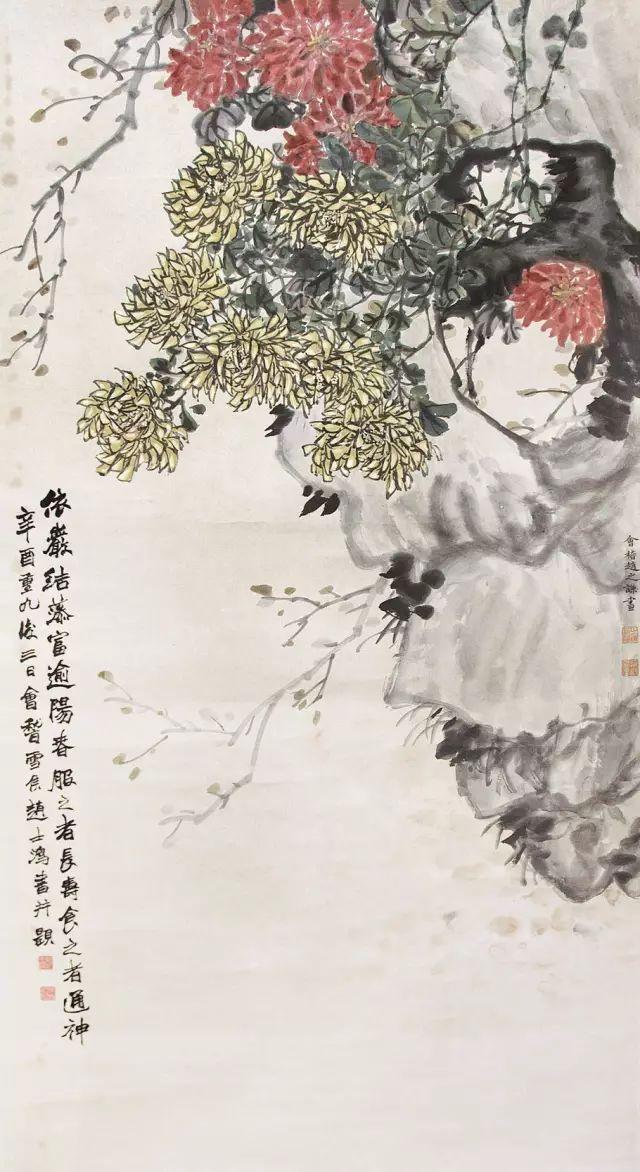 會稽趙之謙畫
依嚴結富逾陽春服之者長壽食之者通神
辛酉重九後三日會稽雪趙士鴻書并題